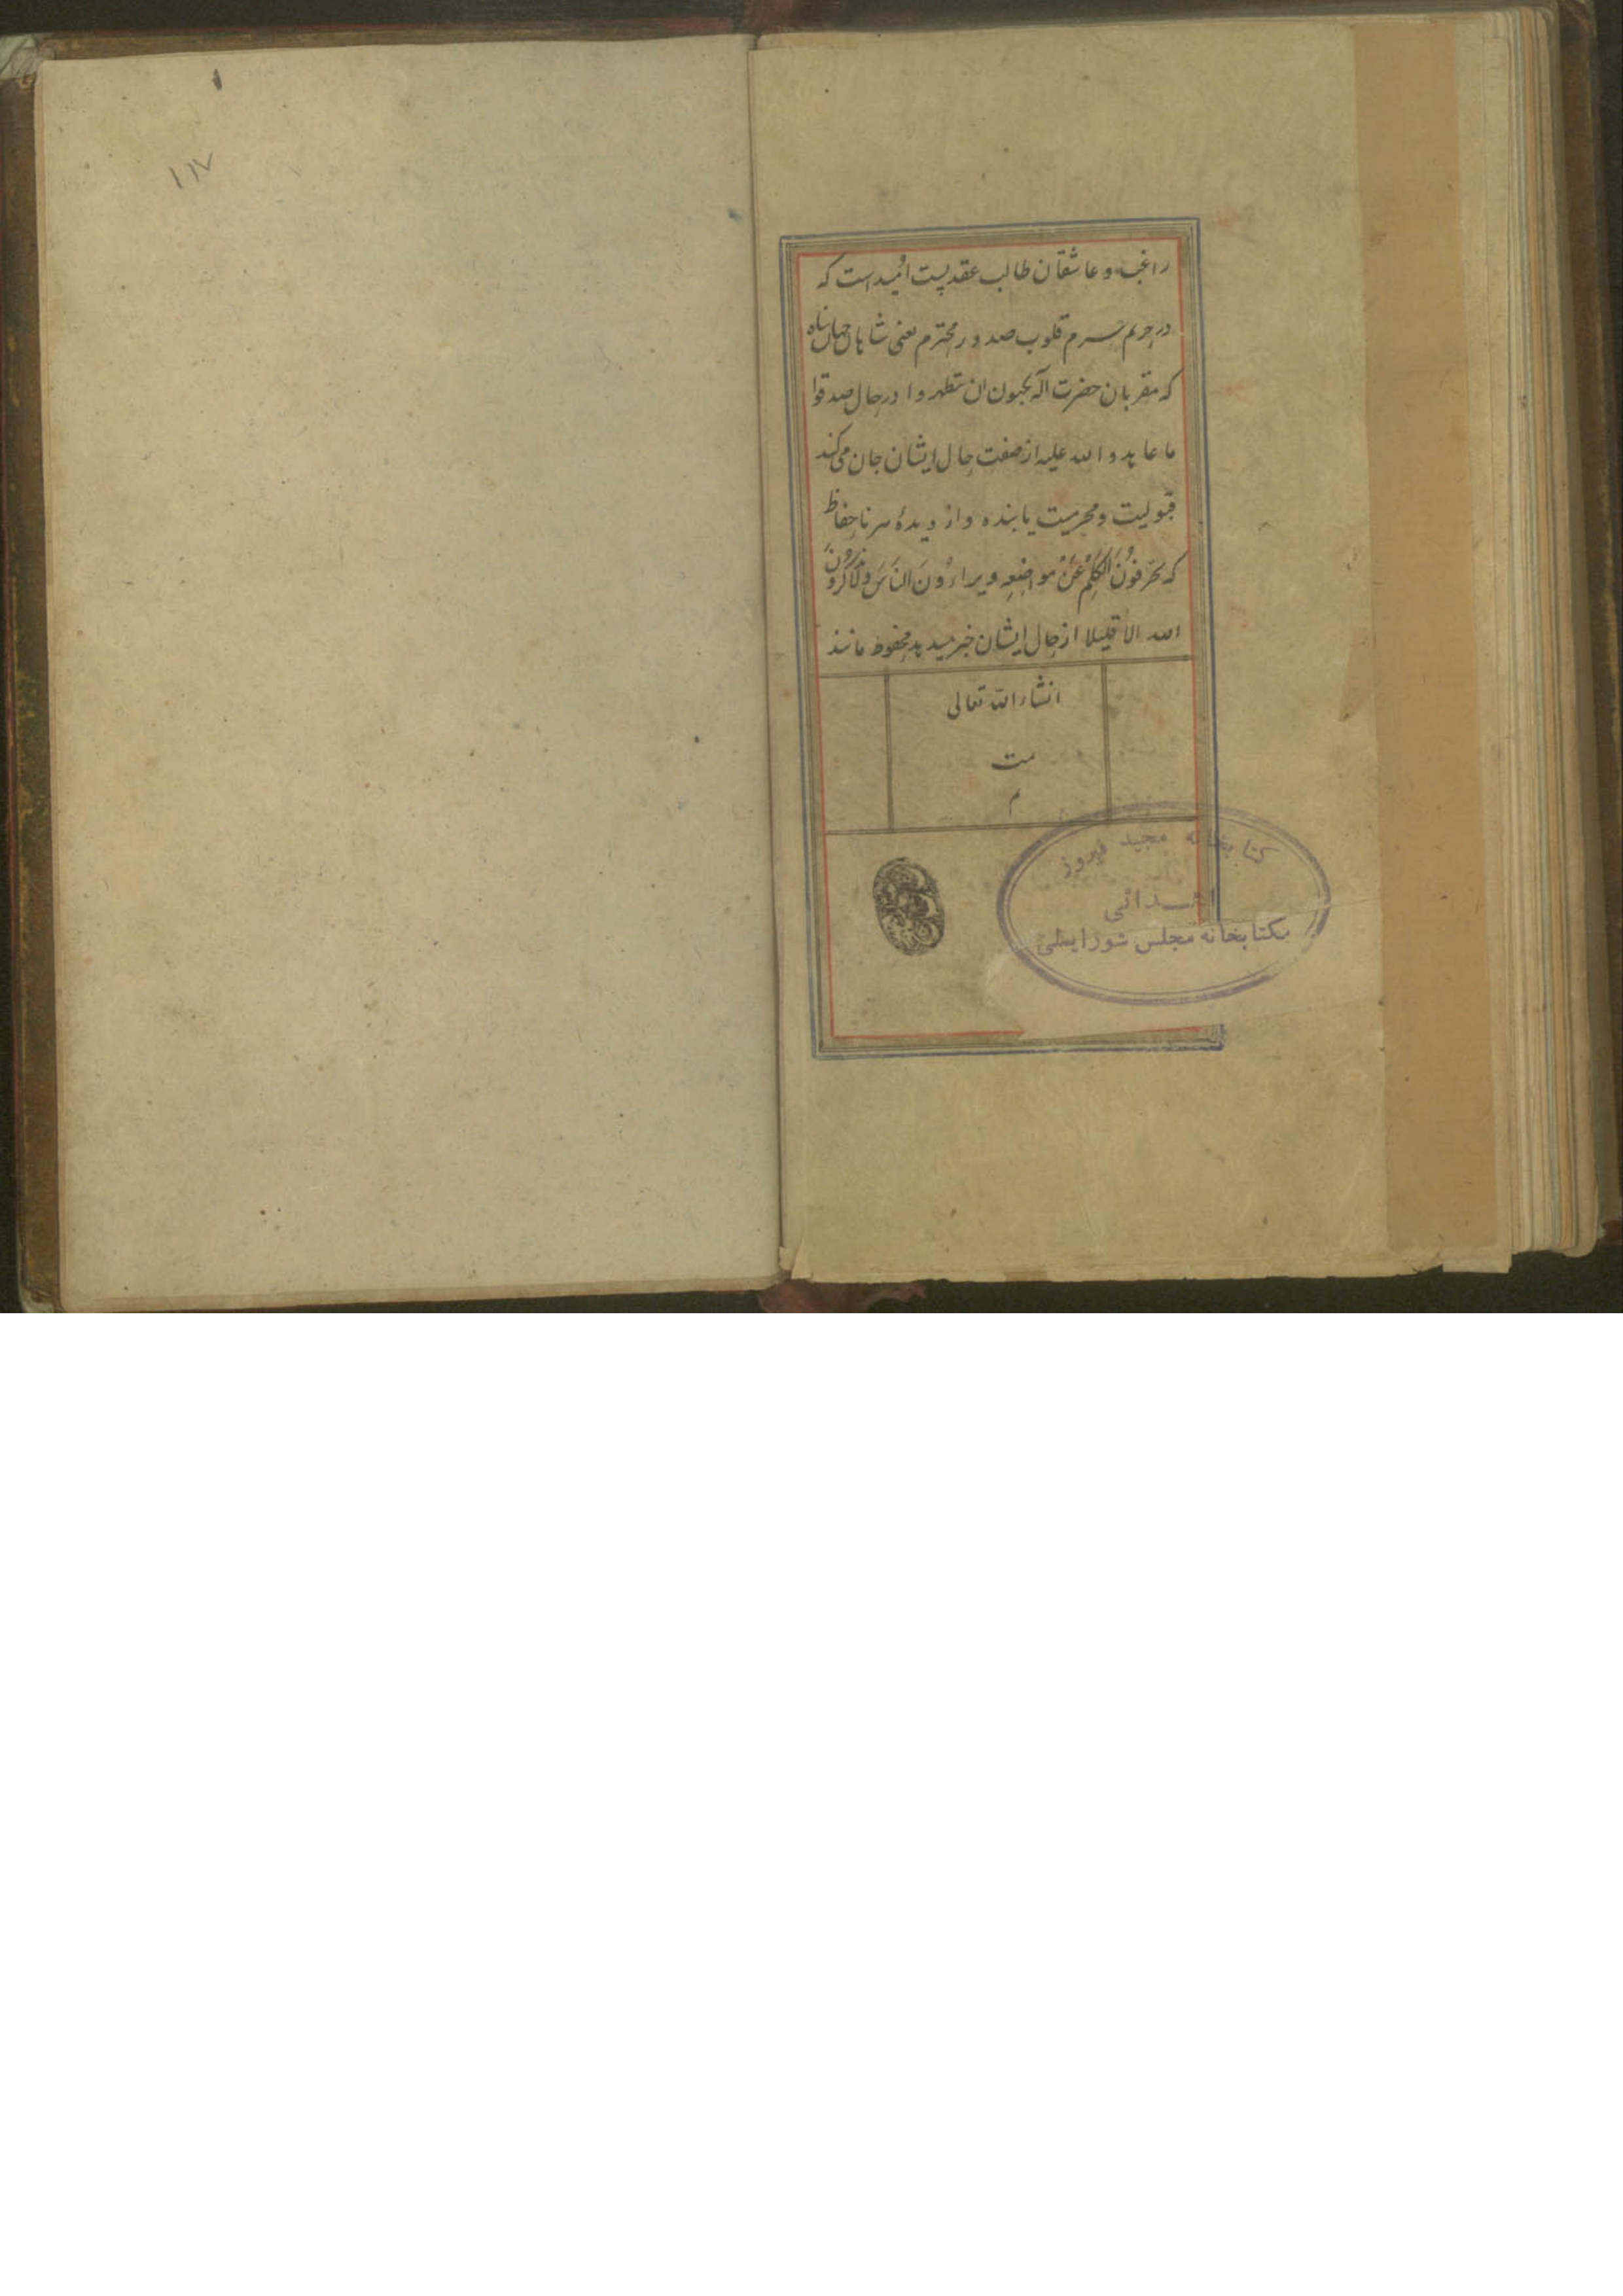 راغب و عاشقان طالب عقد پست امید است که
در حریم حرم قلوب صدور محترم یعنی شاهان جهان پناه
که مقربان حضرت اله یحبون ان یتطهروا در رجال صدقوا
ما عاهدوا الله علیه از صفت حال ایشان جان می‌کند
قبولیت و محرمیت یابنده و از دیدهٔ هر نا حفاظ
که یحرّفُونَ الکَلِمَ عَنْ مواضِعِه و یراءُونَ النّاسَ و لا یذکُرُونَ
الله الا قلیلا از حال ایشان خبر میدهد محفوظ مانند
انشاء الله تعالی
تمت
م
کتابخانه مجید فیروز
اهدائی
بکتابخانه مجلس شورایملی
۱۱۷